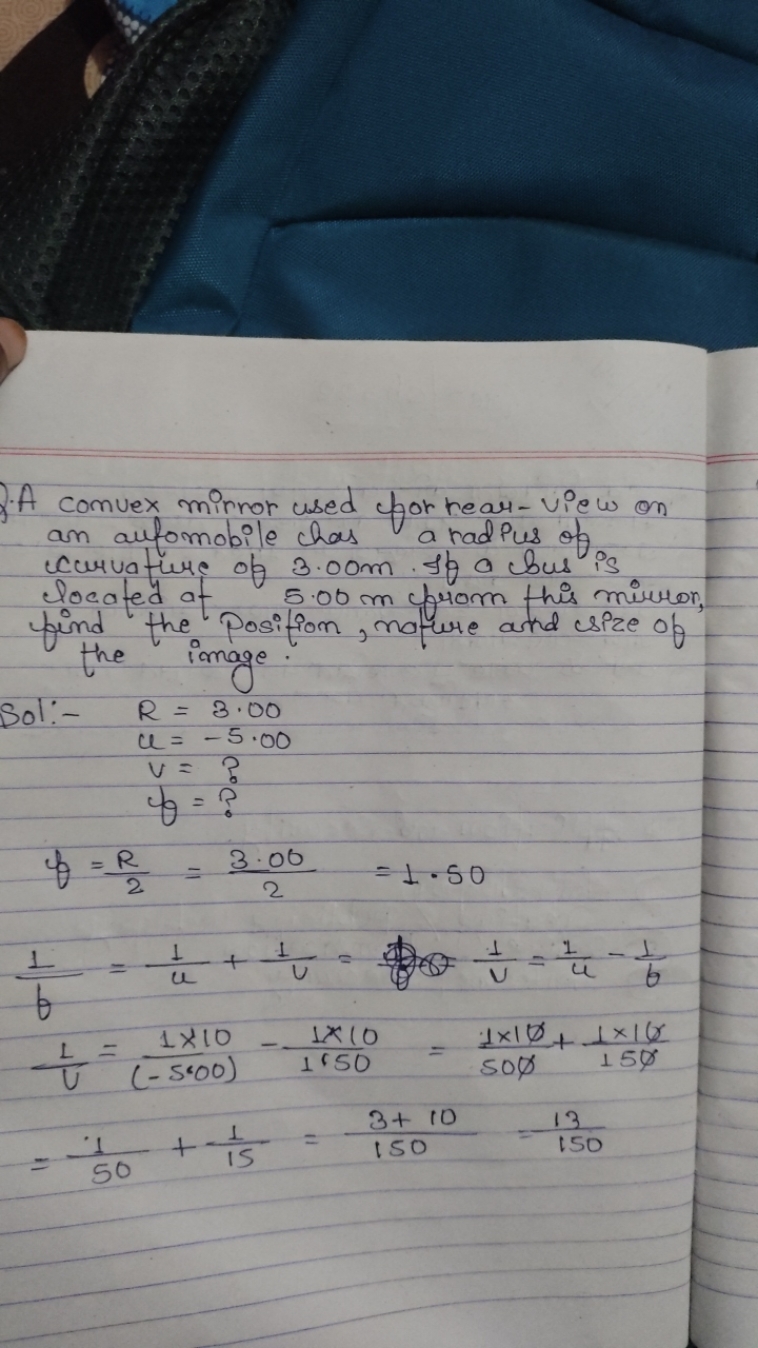 Q.A convex mirror used for rear-view on
an automobile has a radius of
curvature of 3.00m. If a bus is
located at 5.00 m from this mirror,
find the position, nature and size of
the image.
Sol:- R = 3.00
u = -5.00
v = ?
f = ?
f = R/2 = 3.00/2 = 1.50
1/f = 1/u + 1/v = 1/v = 1/u - 1/f
1/v = 1×10/(-5.00) - 1×10/1.50 = 1×10/500 + 1×10/150
= 1/50 + 1/15 = 3+10/150 = 13/150